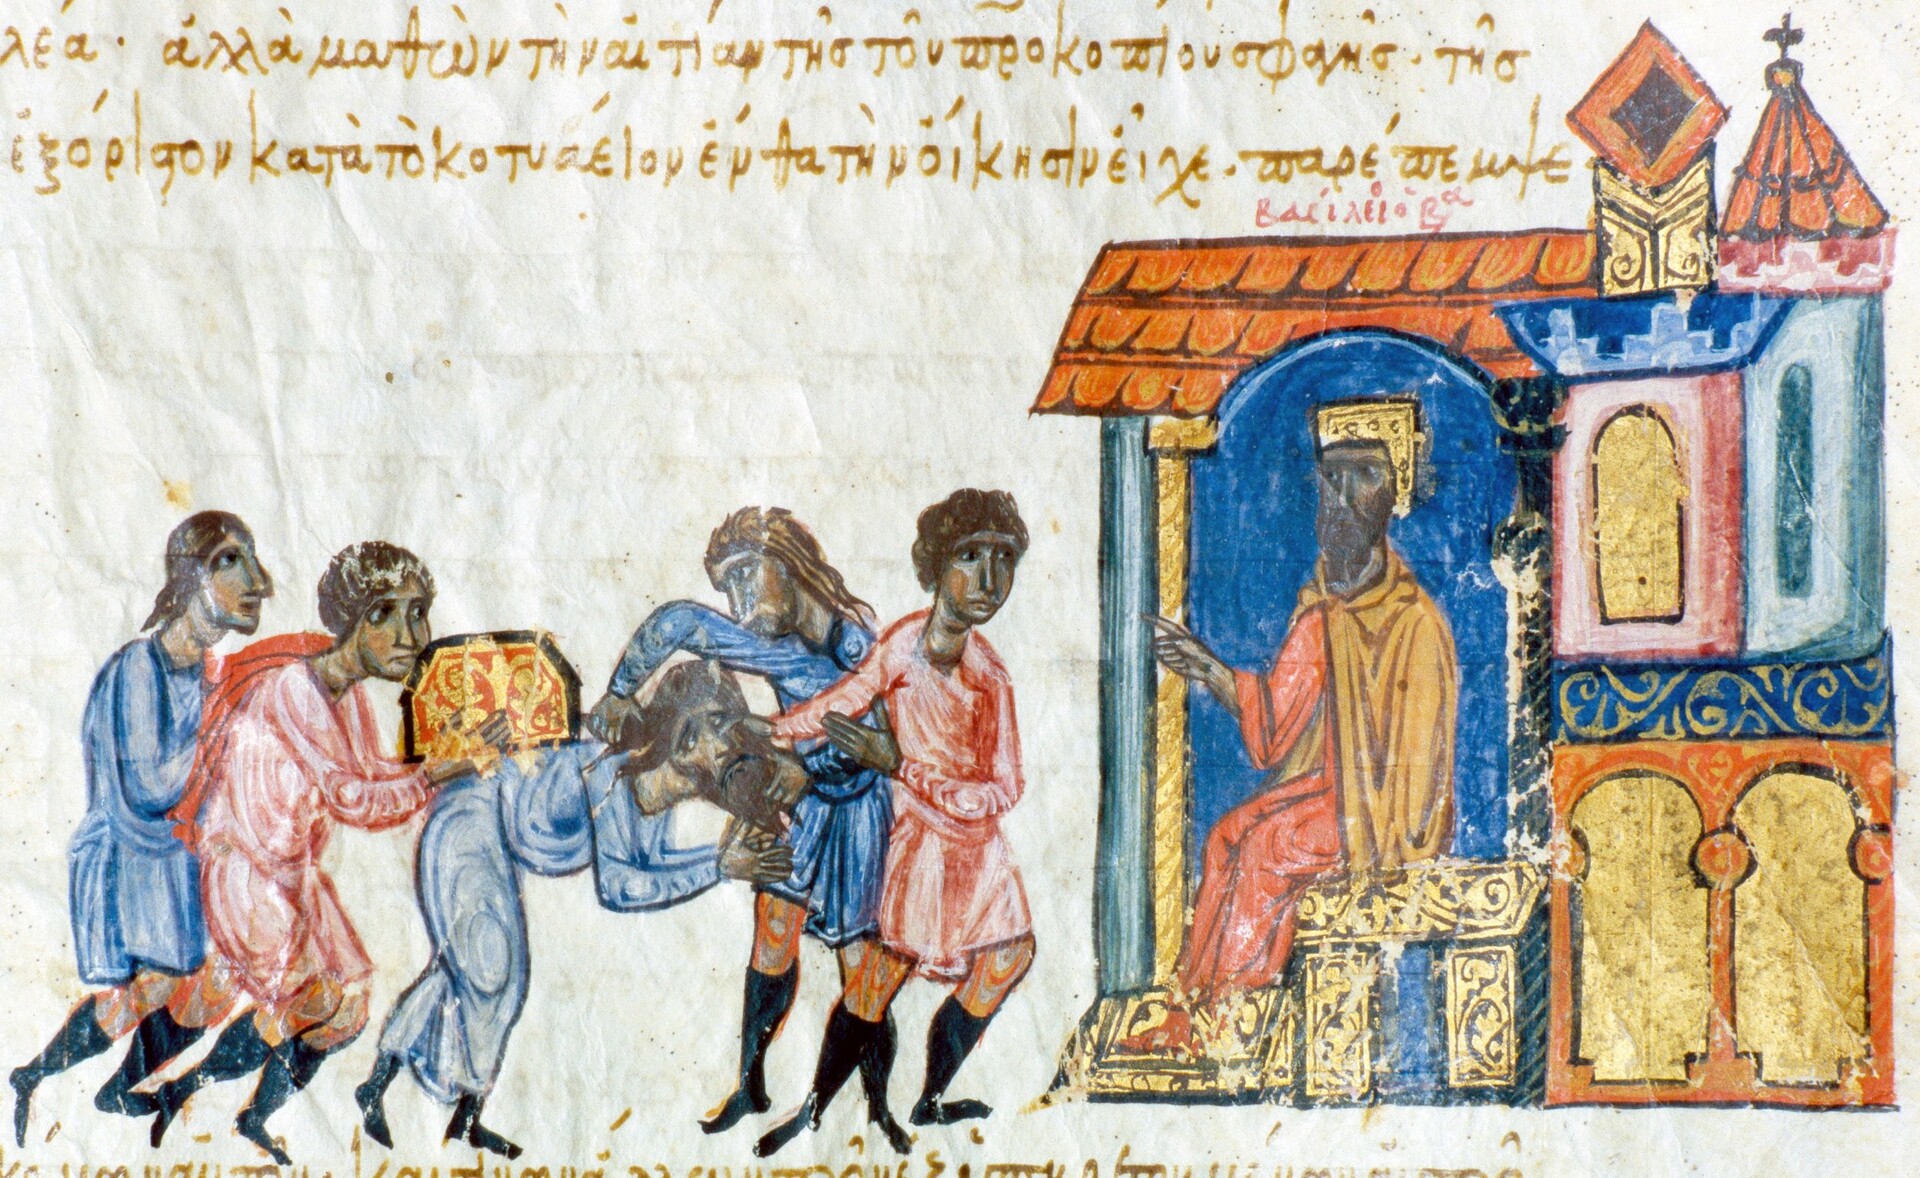 λέα· ἀλλὰ μαθὼν τὴν αἰτίαν τῆς τοῦ προκοπίου σφαγῆς· τῆς
ἐξόριστον κατὰ τὸ κοτυάειον ἔνθα τὴν οἴκησιν εἶχε· παρέπεμψε
βασίλειο βα